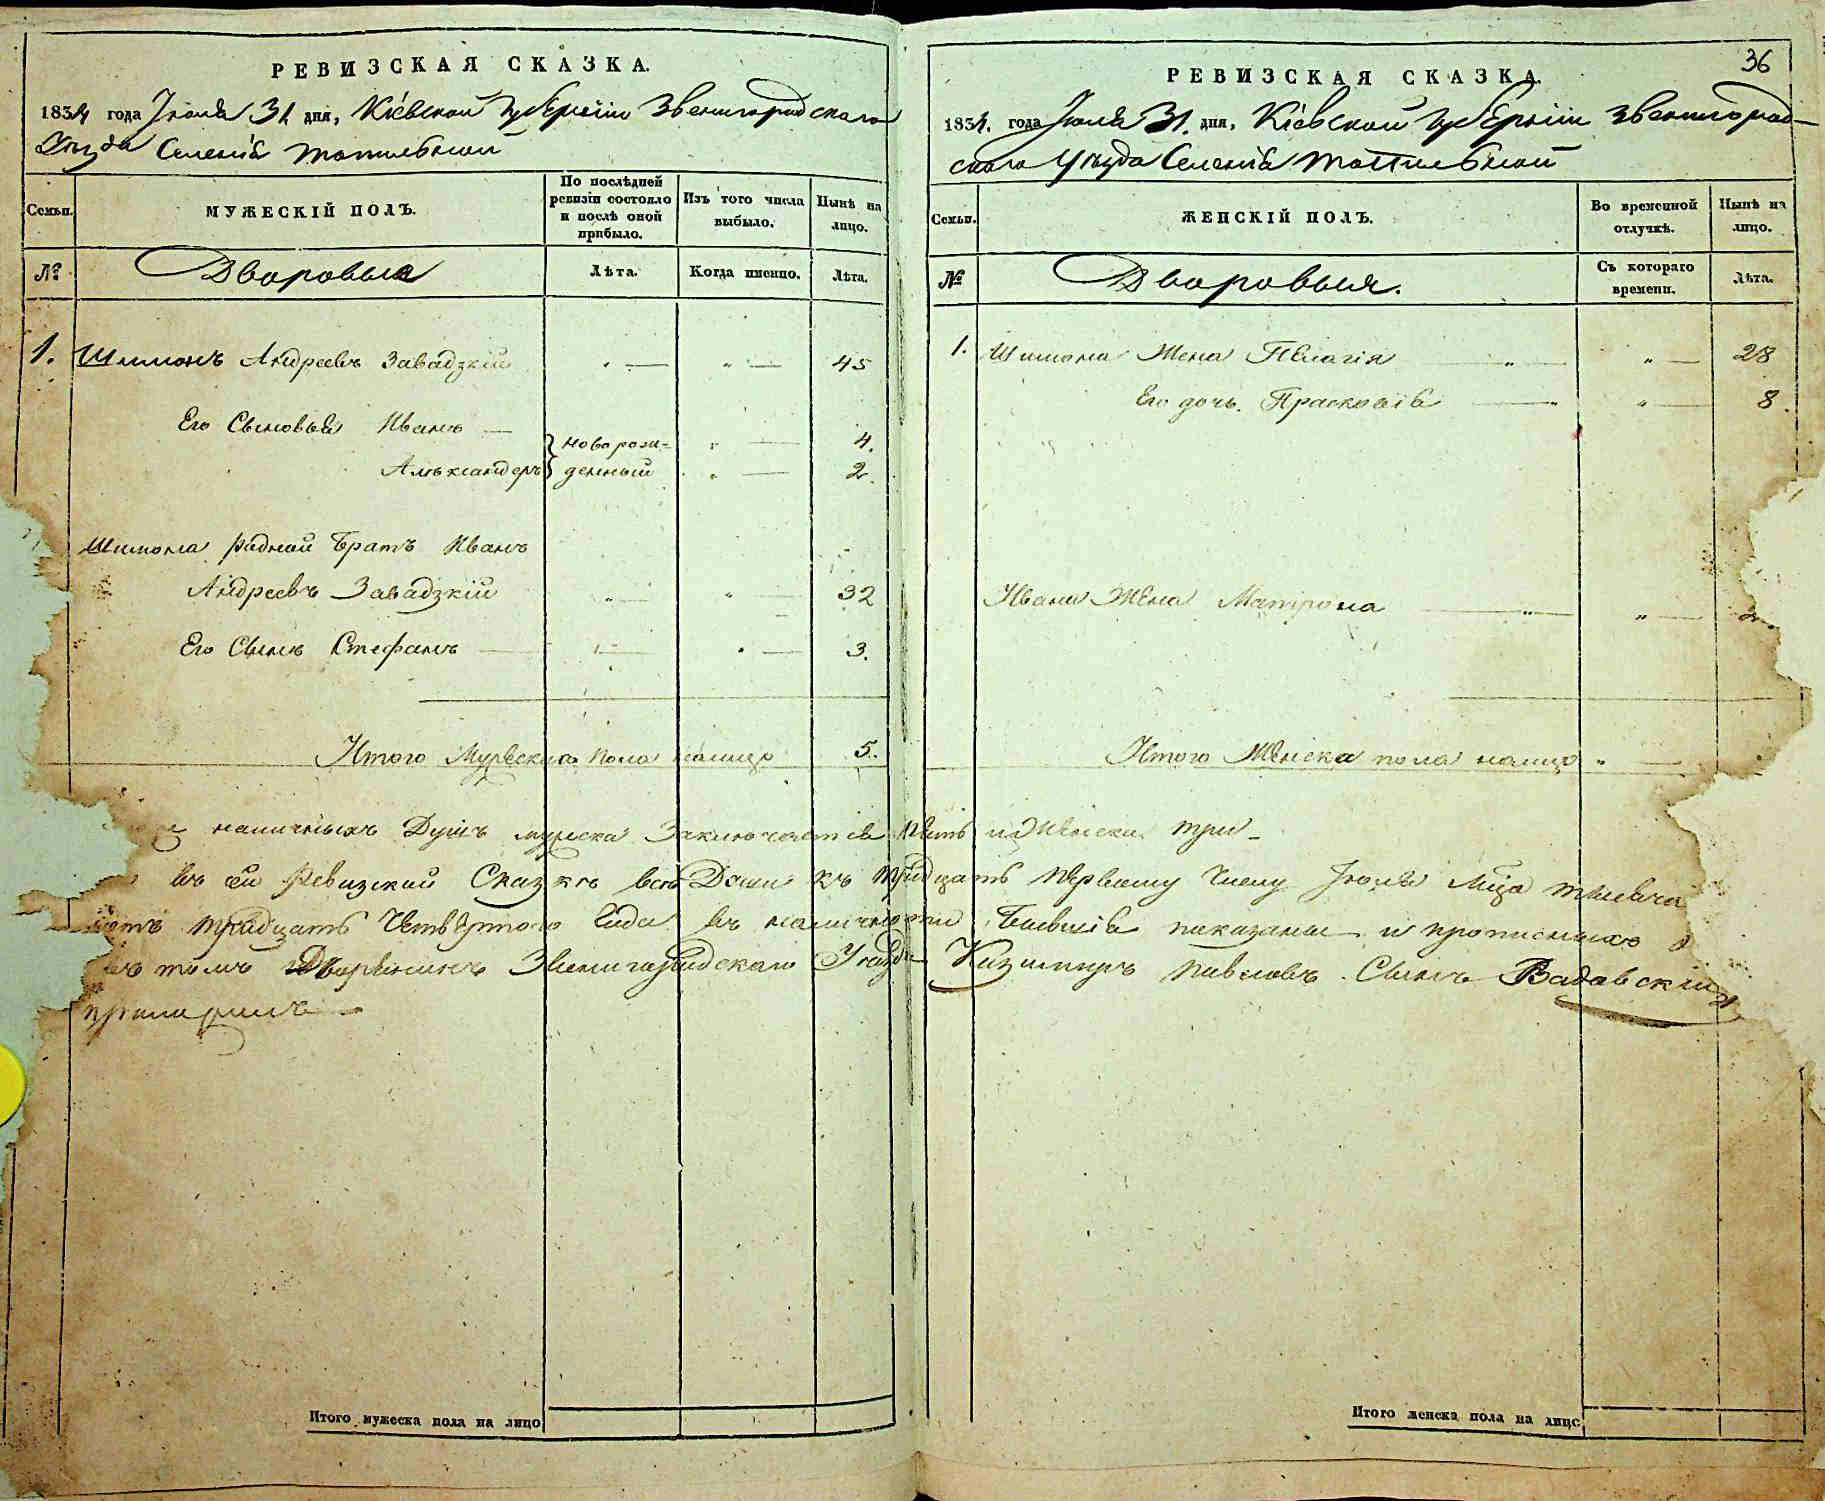 РЕВИЗСКАЯ СКАЗКА.
1834 года Іюля 31 дня, Кіевской Губерніи Звенигородскаго
Уѣзда Селенія Топильной
Семьи.
МУЖЕСКІЙ ПОЛЪ.
По послѣдней ревизіи состояло и послѣ оной прибыло.
Изъ того числа выбыло.
Нынѣ на лицо.
№
Дворовыя
Лѣта.
Когда именно.
Лѣта.
1. Шимонъ Андреевъ Завадзкій „ — „ — 45
Его Сыновья Иванъ — новорож- „ — 4.
Александеръ денный „ — 2.
Шимона родной братъ Иванъ
Андреевъ Завадзкій „ — „ — 32
Его Сынъ Стефанъ — „ — 3.
Итого Мужеска пола налицо 5.
Итого мужеска пола на лицо
36
РЕВИЗСКАЯ СКАЗКА.
1834. года Іюля 31. дня, Кіевской Губерніи Звенигород-
скаго Уѣзда Селенія Топильной
Семьи.
ЖЕНСКІЙ ПОЛЪ.
Во временной отлучкѣ.
Нынѣ на лицо.
№
Дворовыя.
Съ котораго времени.
Лѣта.
1. Шимона Жена Пелагія „ — „ — 28
Его дочь. Прасковія — „ — 8.
Ивана Жена Матрона „ — „ —
Итого Женска пола налицо „ —
наличныхъ Душъ мужеска Заключается пять и Женска три —
въ сей Ревизской Сказкѣ всѣ Души къ тридцать первому Числу Іюля Мца тысяча
тридцать Четвертого Года въ наличности бывшія показаны и прописныхъ
въ томъ Дворянинъ Звенигородскаго Уѣзда Казимиръ Павловъ Сынъ
Итого женска пола на лицо